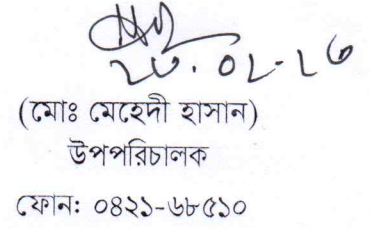 (মোঃ মেহেদী হাসান)
উপপরিচালক
ফোন: ০৪২১-৬৮৫১০